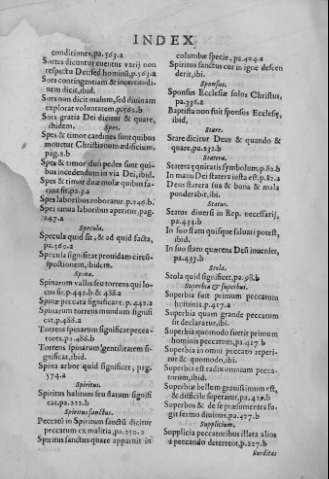 INDEX
conditiones, pa.563.a
Sortes dicuntur euentus varij non
respectu Dei sed hominũ, p.563.a
Sors contingentiam & incertitudi-
nem dicit, ibid.
Sors non dicit malum, sed diuinam
explorat voluntatem, p.562.b
Sors gratia Dei dicitur & quare,
ibidem.
Spes.
Spes & timor cardines sunt quibus
mouetur Christianum ædificium,
pag.8.b
Spes & timor duo pedes sunt qui-
bus incedendum in via Dei, ibid.
Spes & timor duæ molæ quibus fa-
rina fit.
Spes laboribus roboratur. p.246.b.
Spei ianua laboribus aperitur, pag.
247.a
Specula.
Specula quid sit, & ad quid facta,
pa.560.a
Specula significat prouidam circũ-
spectionem, ibidem.
Spina.
Spinarum vallis seu torrens qui lo-
cus sit p.442.b & 488.a
Spinæ peccata significant. p.442.a
Spinarum torrens mundum signifi
cat, p.488.a
Torrens spinarum significat pecca-
tores. p.488.b
Torrens spinarum gentilitatem si-
gnificat, ibid.
Spina arbor quid significet, pag.
574.a
Spiritus.
Spiritus halitum seu flatum signifi
cat, pa.222.b
Spiritus sanctus.
Peccato in Spiritum sanctũ dicitur
peccatum ex malitia, pa.250.a
Spiritus sanctus quare apparuit in
columbæ specie, pa.404.a
Spiritus sanctus cur in igne descen
derit, ibi.
Sponsus.
Sponsus Ecclesiæ solus Christus,
pa.336.a
Baptista non fuit sponsus Ecclesiæ,
ibid.
Stare.
Stare dicitur Deus & quando &
quare, pa.232.b
Statera.
Statera æquitatis symbolum, p.82.b
In manu Dei statera iusta est. p.82.a
Deus statera sua & bona & mala
ponderabit, ibi.
Status.
Status diuersi in Rep. necessarij,
pa.435.b
In suo statu quisque saluari potest,
ibid.
In suo statu quærens Deũ inuenier,
pa.437.b
Stola.
Stola quid significet, pa.98.b
Superbia & superbus.
Superbia fuit primum peccatum
hominis. p.417.a
Superbia quam grande peccatum
sit declaratur, ibi.
Superbia quomodo fuerit primum
hominis peccatum, p.417.b
Superbia in omni peccato reperi-
tur & quomodo, ibi.
Superbia est radix omnium pecca-
torum, ibid.
Superbiæ bellum grauissimum est,
& difficile superatur, p.428.b
Superbos & de se præsumentes fu-
git sermo diuinus, pa.427.b
Supplicium.
Supplicia peccatoribus illata alios
a peccando deterrent, p.227.b
Surditas